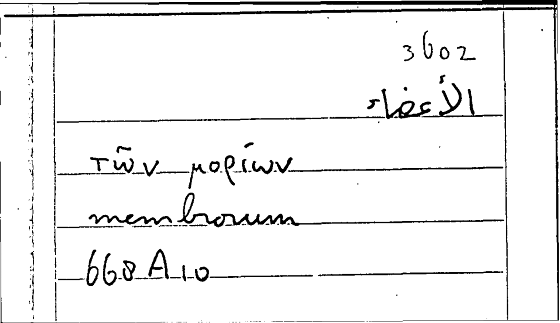 3602
الأعضاء
τῶν μορίων
membrorum
668 A 10